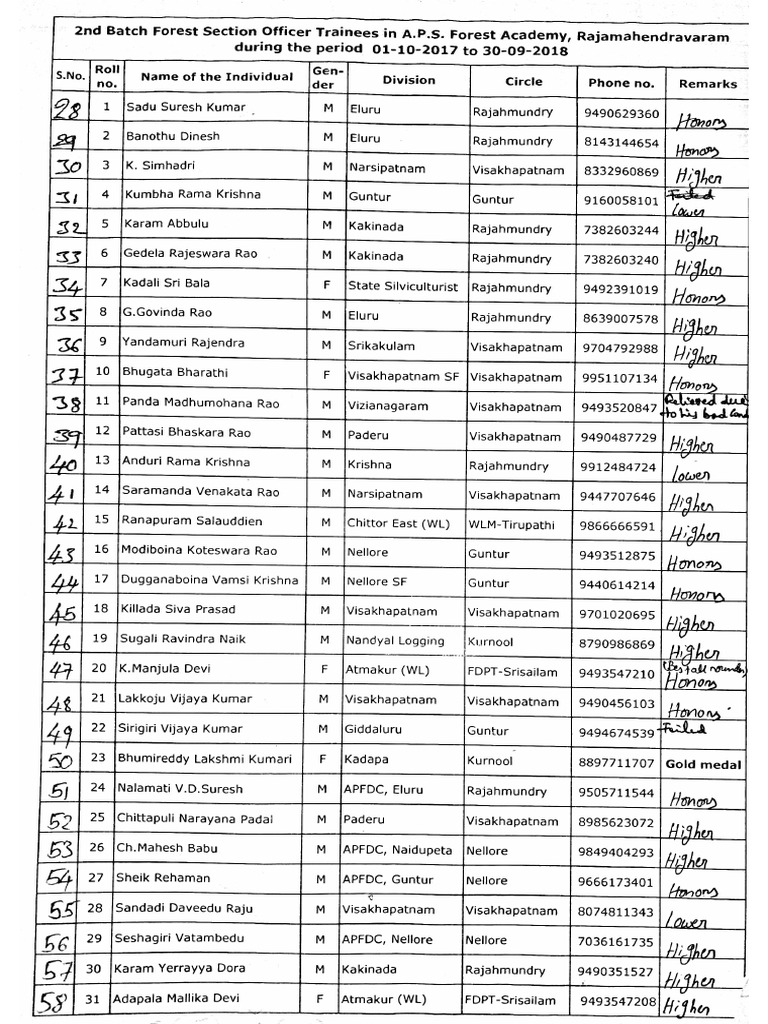 2nd Batch Forest Section Officer Trainees in A.P.S. Forest Academy, Rajamahendravaram
during the period 01-10-2017 to 30-09-2018
S.No. Roll no. Name of the Individual Gen-der Division Circle Phone no. Remarks
28 1 Sadu Suresh Kumar M Eluru Rajahmundry 9490629360 Honors
29 2 Banothu Dinesh M Eluru Rajahmundry 8143144654 Honors
30 3 K. Simhadri M Narsipatnam Visakhapatnam 8332960869 Higher
31 4 Kumbha Rama Krishna M Guntur Guntur 9160058101 Failed Lower
32 5 Karam Abbulu M Kakinada Rajahmundry 7382603244 Higher
33 6 Gedela Rajeswara Rao M Kakinada Rajahmundry 7382603240 Higher
34 7 Kadali Sri Bala F State Silviculturist Rajahmundry 9492391019 Honors
35 8 G.Govinda Rao M Eluru Rajahmundry 8639007578 Higher
36 9 Yandamuri Rajendra M Srikakulam Visakhapatnam 9704792988 Higher
37 10 Bhugata Bharathi F Visakhapatnam SF Visakhapatnam 9951107134 Honors
38 11 Panda Madhumohana Rao M Vizianagaram Visakhapatnam 9493520847 Relieved due to his bad
39 12 Pattasi Bhaskara Rao M Paderu Visakhapatnam 9490487729 Higher
40 13 Anduri Rama Krishna M Krishna Rajahmundry 9912484724 Lower
41 14 Saramanda Venakata Rao M Narsipatnam Visakhapatnam 9447707646 Higher
42 15 Ranapuram Salauddien M Chittor East (WL) WLM-Tirupathi 9866666591 Higher
43 16 Modiboina Koteswara Rao M Nellore Guntur 9493512875 Honors
44 17 Dugganaboina Vamsi Krishna M Nellore SF Guntur 9440614214 Honors
45 18 Killada Siva Prasad M Visakhapatnam Visakhapatnam 9701020695 Higher
46 19 Sugali Ravindra Naik M Nandyal Logging Kurnool 8790986869 Higher
47 20 K.Manjula Devi F Atmakur (WL) FDPT-Srisailam 9493547210 (Best all rounder) Honors
48 21 Lakkoju Vijaya Kumar M Visakhapatnam Visakhapatnam 9490456103 Honors
49 22 Sirigiri Vijaya Kumar M Giddaluru Guntur 9494674539 Failed
50 23 Bhumireddy Lakshmi Kumari F Kadapa Kurnool 8897711707 Gold medal
51 24 Nalamati V.D.Suresh M APFDC, Eluru Rajahmundry 9505711544 Honors
52 25 Chittapuli Narayana Padal M Paderu Visakhapatnam 8985623072 Higher
53 26 Ch.Mahesh Babu M APFDC, Naidupeta Nellore 9849404293 Higher
54 27 Sheik Rehaman M APFDC, Guntur Nellore 9666173401 Honors
55 28 Sandadi Daveedu Raju M Visakhapatnam Visakhapatnam 8074811343 Lower
56 29 Seshagiri Vatambedu M APFDC, Nellore Nellore 7036161735 Higher
57 30 Karam Yerrayya Dora M Kakinada Rajahmundry 9490351527 Higher
58 31 Adapala Mallika Devi F Atmakur (WL) FDPT-Srisailam 9493547208 Higher